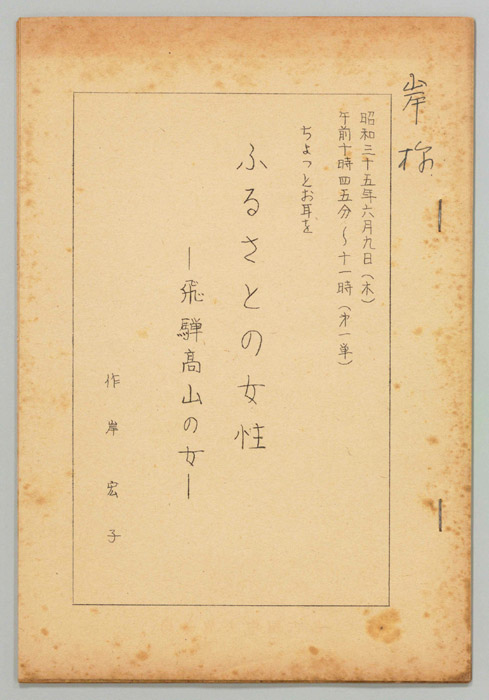 岸様
昭和三十五年六月九日(木)
午前十時四五分~十一時(第一単)
ちょっとお耳を
ふるさとの女性
―飛騨高山の女―
作 岸 宏子